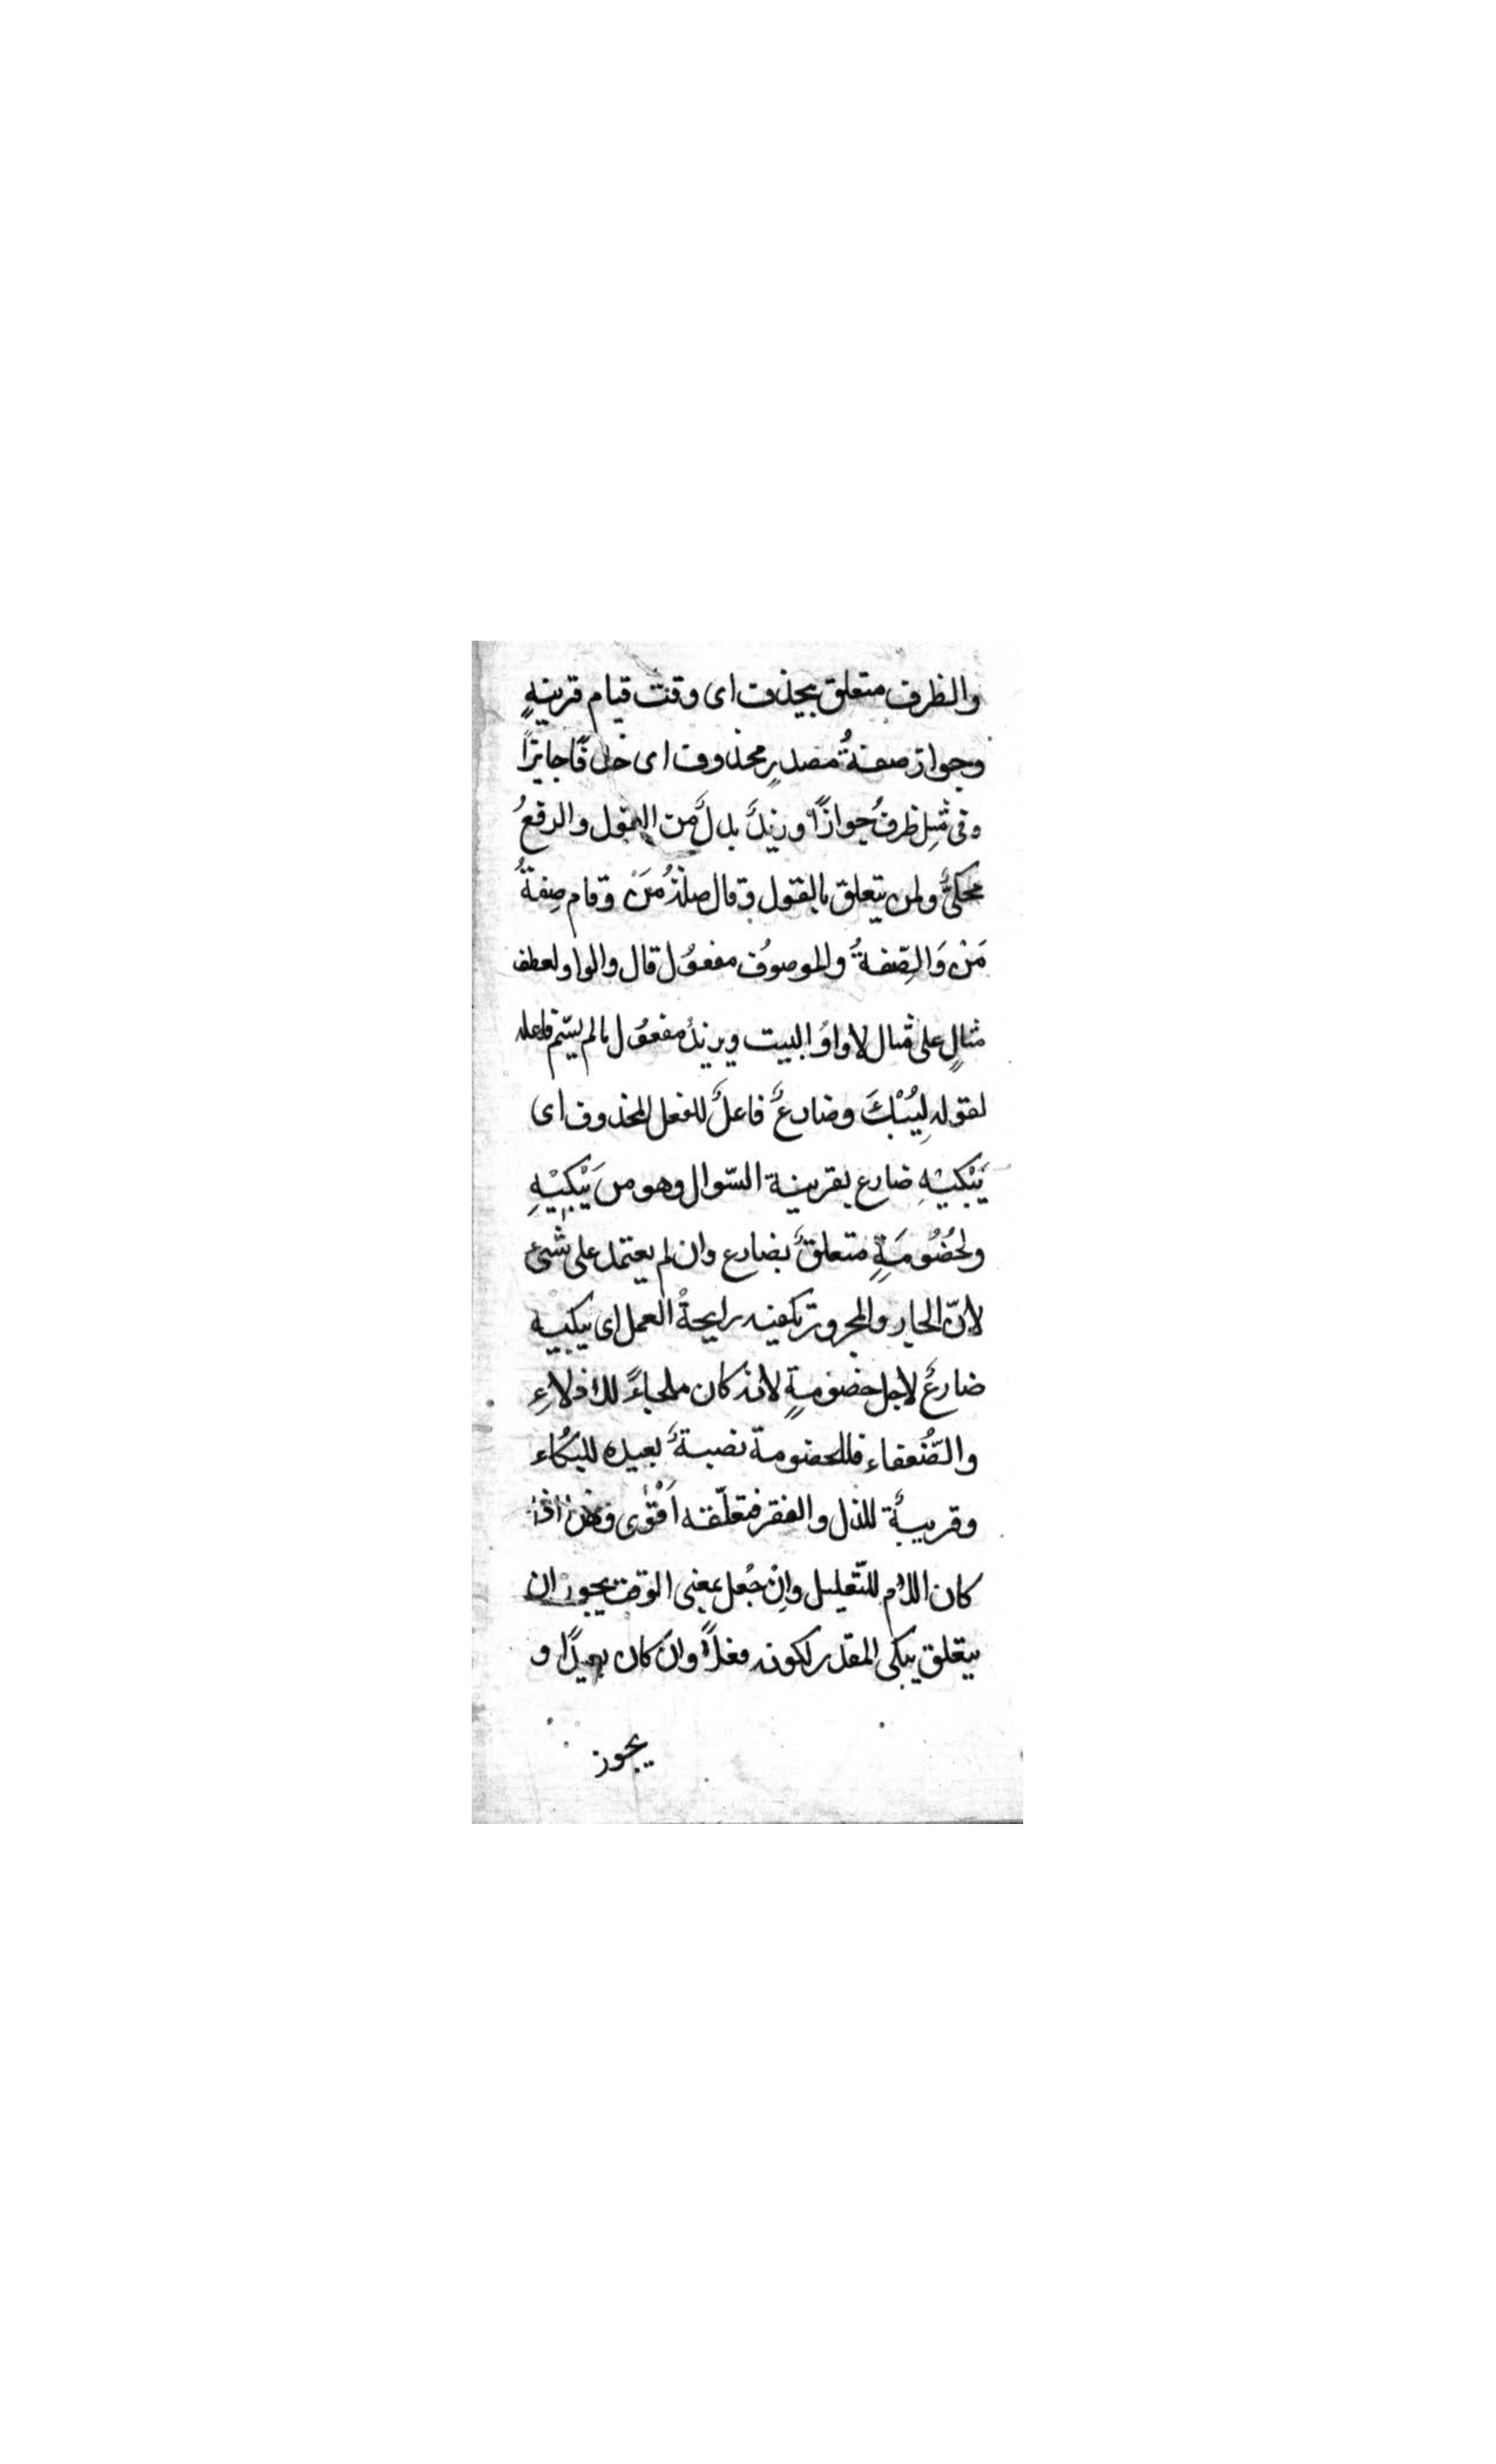 والظرف متعلق بيحذف اى وقت قيام قرينةٍ
وجواز صفةُ مصدرٍ محذوف اى حذفًا جايزًا
وفى مثل ظرفُ جوازًا وزيدٌ بدلٌ من المقول والرفعُ
محكىٌّ ولمن يتعلق بالقول وقال صلةُ مَنْ وقام صِفةُ
مَنْ وَالصِّفةُ والموصوُف مفعوُل قال والواو لعطف
مثالٍ على مثال لا واوُ البيت ويزيدُ مفعوُل مالم يسّم فاعله
لقوله لِيُبْكَ وضارعٌ فاعلٌ للفعل المحذوف اى
يَبْكيْهِ ضارع بقرينة السّوال وهو من يَبْكِيْهِ
ولخُصُومَةٍ متعلقٌ بضارع وان لم يعتمد على شىء
لانّ الجار والمجرور تكفيه رايحةُ العمل اى يبكيه
ضارعٌ لاجل خصومةٍ لانه كان ملجاءً للاذلاءِ
والضُّعفاء فللخصومة نصبةٌ بعيده للبُكاء
وقريبةٌ للذل والفقر فتعلّقه اَقْوٰى وهٰذا اذا
كان اللام للتّعليل واِنْ جُعل بمعنى الوقت يجوز ان
يتعلق يبكى المقدر لكونه فعلاً وان كان بعيدًا و
يجوز